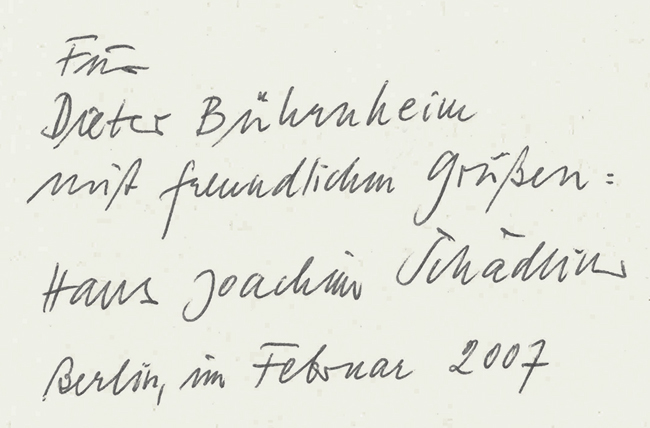 Für
Dieter Bührnheim
mit freundlichen Grüßen:
Hans Joachim Schädlich
Berlin, im Februar 2007